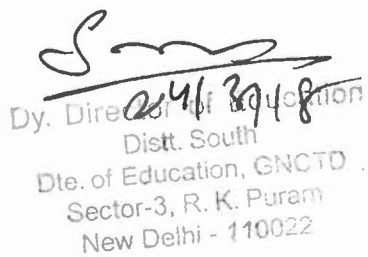 24/3/18
Dy. Director of Education
Distt. South
Dte. of Education, GNCTD
Sector-3, R. K. Puram
New Delhi - 110022